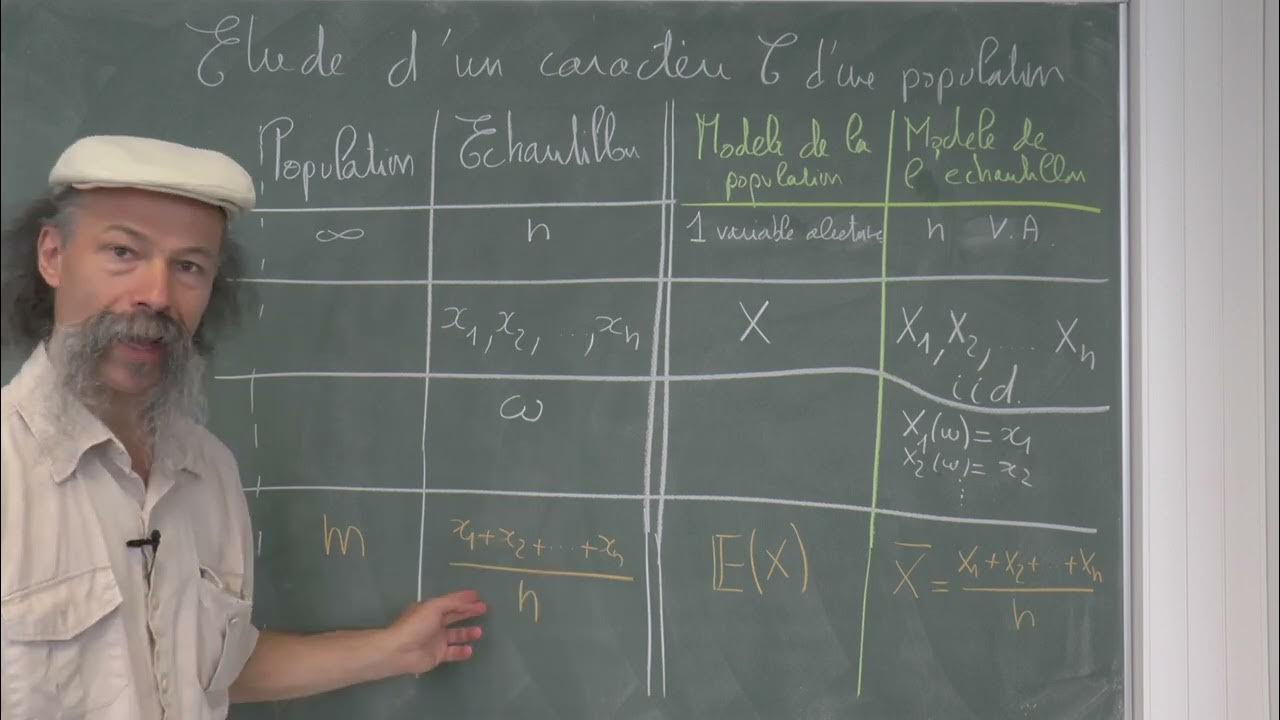 Etude d'un caractère C d'une population
Population Echantillon Modele de la population Modele de l'echantillon
∞ n 1 variable aleatoire n V.A.
x₁, x₂, ..., xₙ X X₁, X₂, .... Xₙ
iid.
ω X₁(ω) = x₁
X₂(ω) = x₂
⋮
m (x₁+x₂+...+xₙ)/n 𝔼(X) X̄ = (X₁+X₂+...+Xₙ)/n